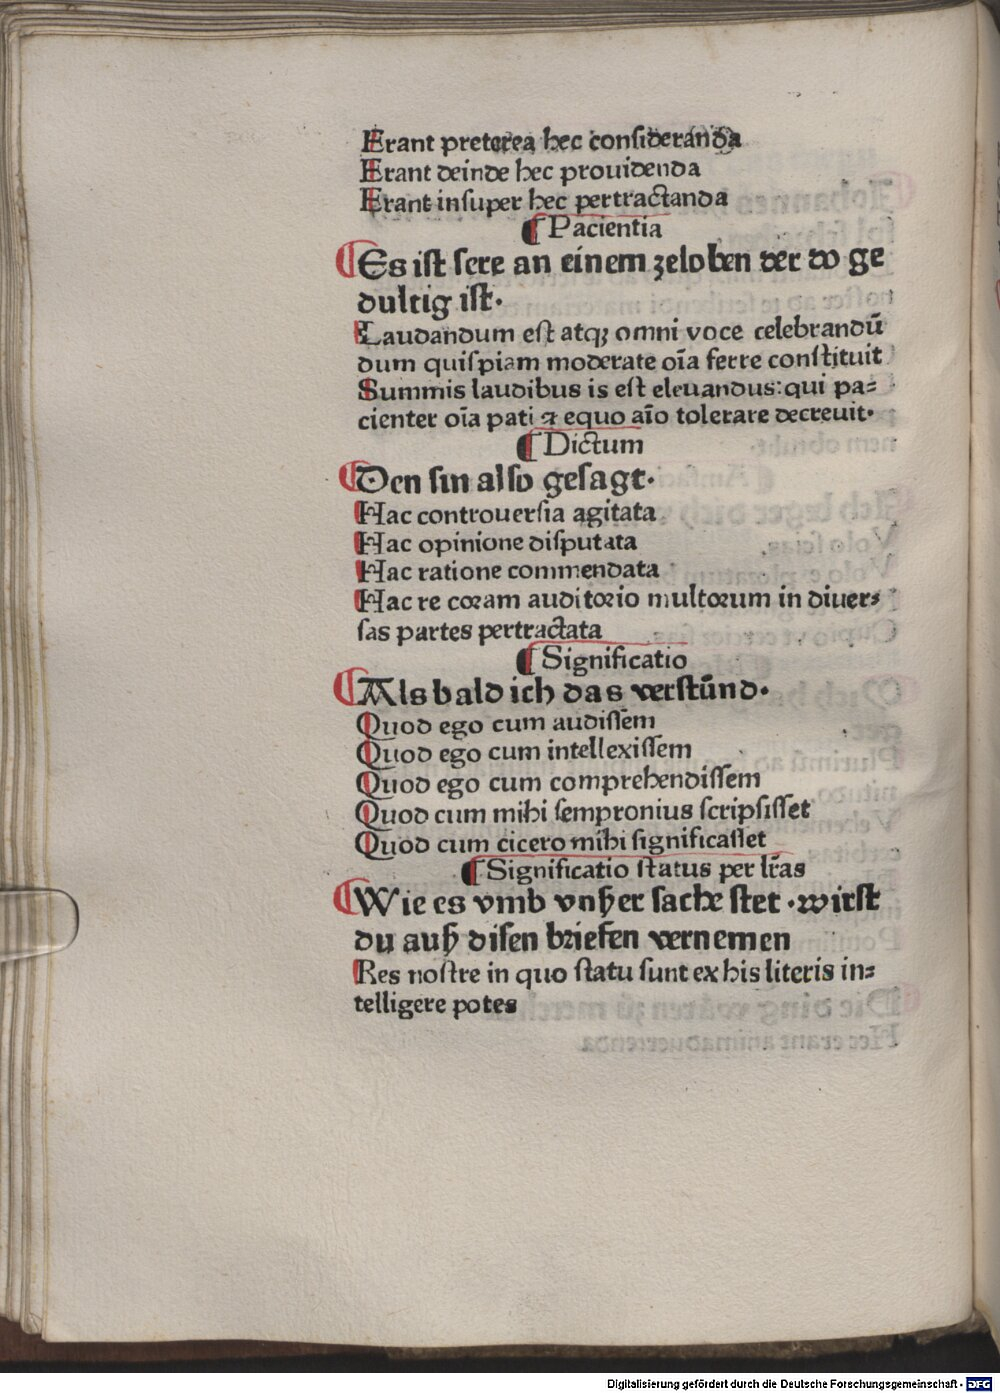 Erant preterea hec consideranda
Erant deinde hec prouidenda
Erant insuper hec pertractanda
¶ Pacientia
¶ Es ist sere an einem zeloben der do ge
dultig ist.
Laudandum est atqꝫ omni voce celebrandū
dum quispiam moderate oīa ferre constituit
Summis laudibus is est eleuandus: qui pa⸗
cienter oīa pati ⁊ equo aīo tolerare decreuit.
¶ Dictum
¶ Den sin also gesagt.
Hac controuersia agitata
Hac opinione disputata
Hac ratione commendata
Hac re coram auditorio multorum in diuer⸗
sas partes pertractata
¶ Significatio
¶ Als bald ich das verstūnd.
Quod ego cum audissem
Quod ego cum intellexissem
Quod ego cum comprehendissem
Quod cum mihi sempronius scripsisset
Quod cum cicero mihi significasset
¶ Significatio status per lr̄as
¶ Wie es vmb vnßer sache stet . wirst
du auß disen briefen vernemen
Res nostre in quo statu sunt ex his literis in⸗
telligere potes
Digitalisierung gefördert durch die Deutsche Forschungsgemeinschaft - DFG